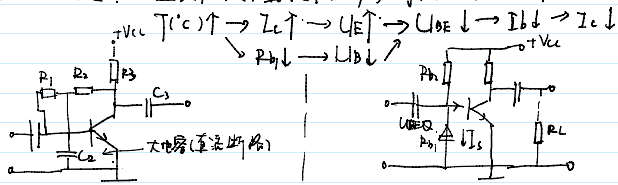 T(°C)↑ → Ic↑ → UE↑ → UBE↓ → Ib↓ → Ic↓
Rb1↓ → UB↓
+Vcc
R1
R2
R3
C3
C2
大电容(直流断路)
+Vcc
Rb2
UBEQ
Rb1
↓Is
RL